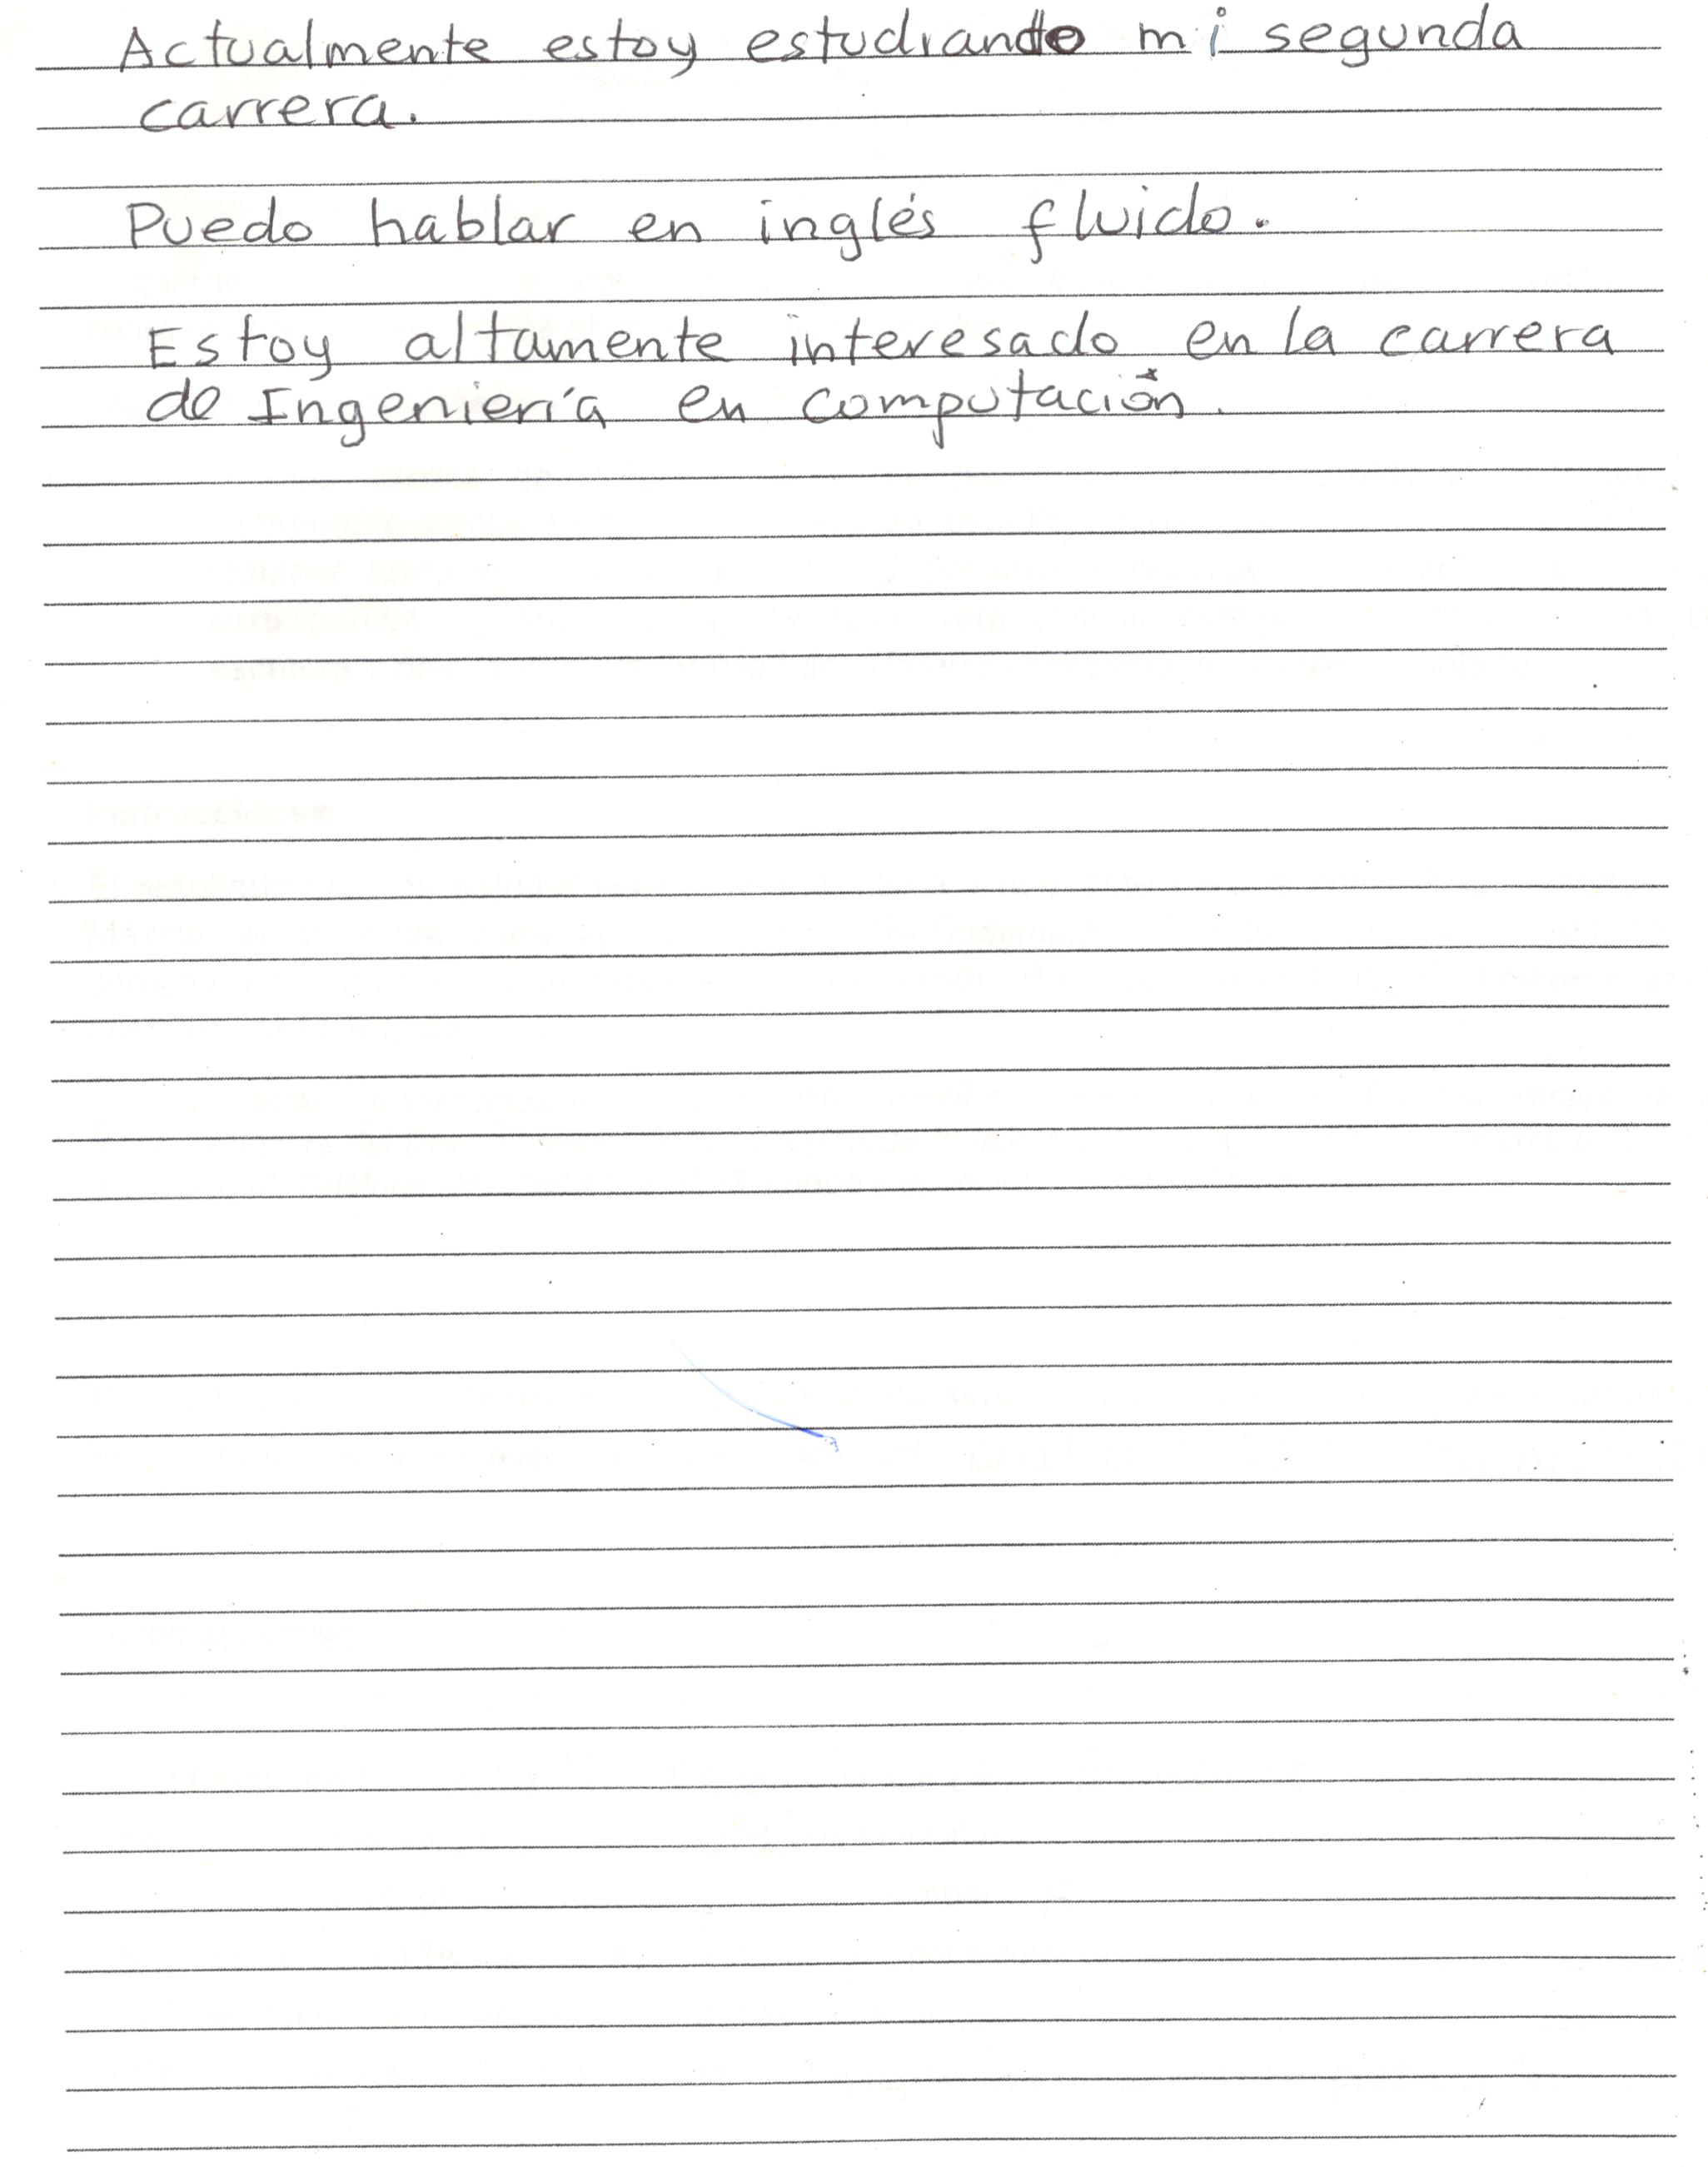 Actualmente estoy estudiando mi segunda
carrera.
Puedo hablar en inglés fluido.
Estoy altamente interesado en la carrera
de Ingeniería en computación.